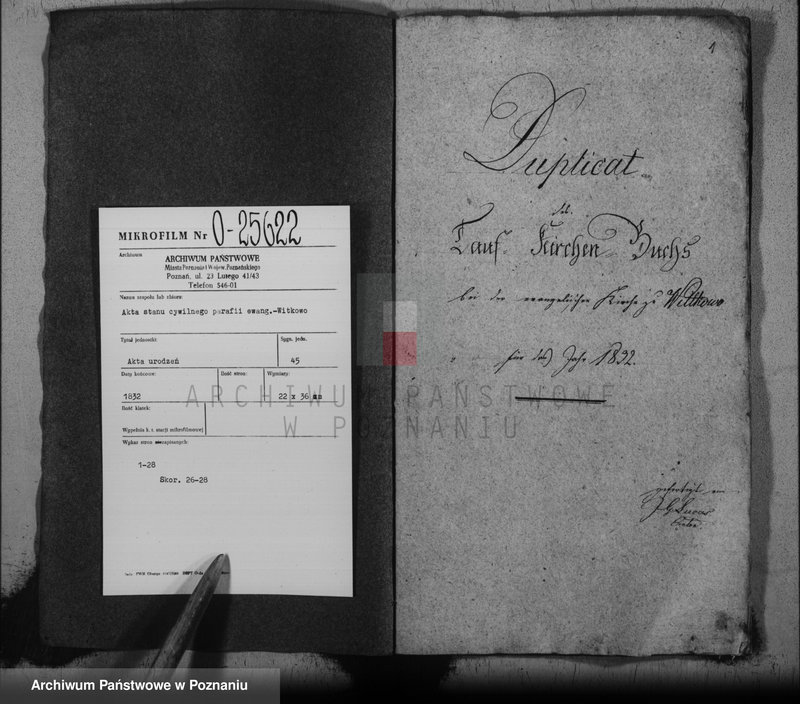 MIKROFILM Nr O-25622
Archiwum
ARCHIWUM PAŃSTWOWE
Miasta Poznania i Wojew. Poznańskiego
Poznań, ul. 23 Lutego 41/43
Telefon 546-01
Nazwa zespołu lub zbioru:
Akta stanu cywilnego parafii ewang.-Witkowo
Tytuł jednostki
Sygn. jedn.
Akta urodzeń
45
Daty końcowe:
Ilość stron:
Wymiary:
1832
22 x 36
Ilość klatek:
Wypełnia k. t. stacji mikrofilmowej
Wykaz stron
1-28
Skor. 26-28
1
Duplicat
des
Tauf Kirchen Buchs
bei der evangelischen Kirche zu Wittkowo
für das Jahr 1832.
gefertigt von
ARCHIWUM PAŃSTWOWE
W POZNANIU
Archiwum Państwowe w Poznaniu